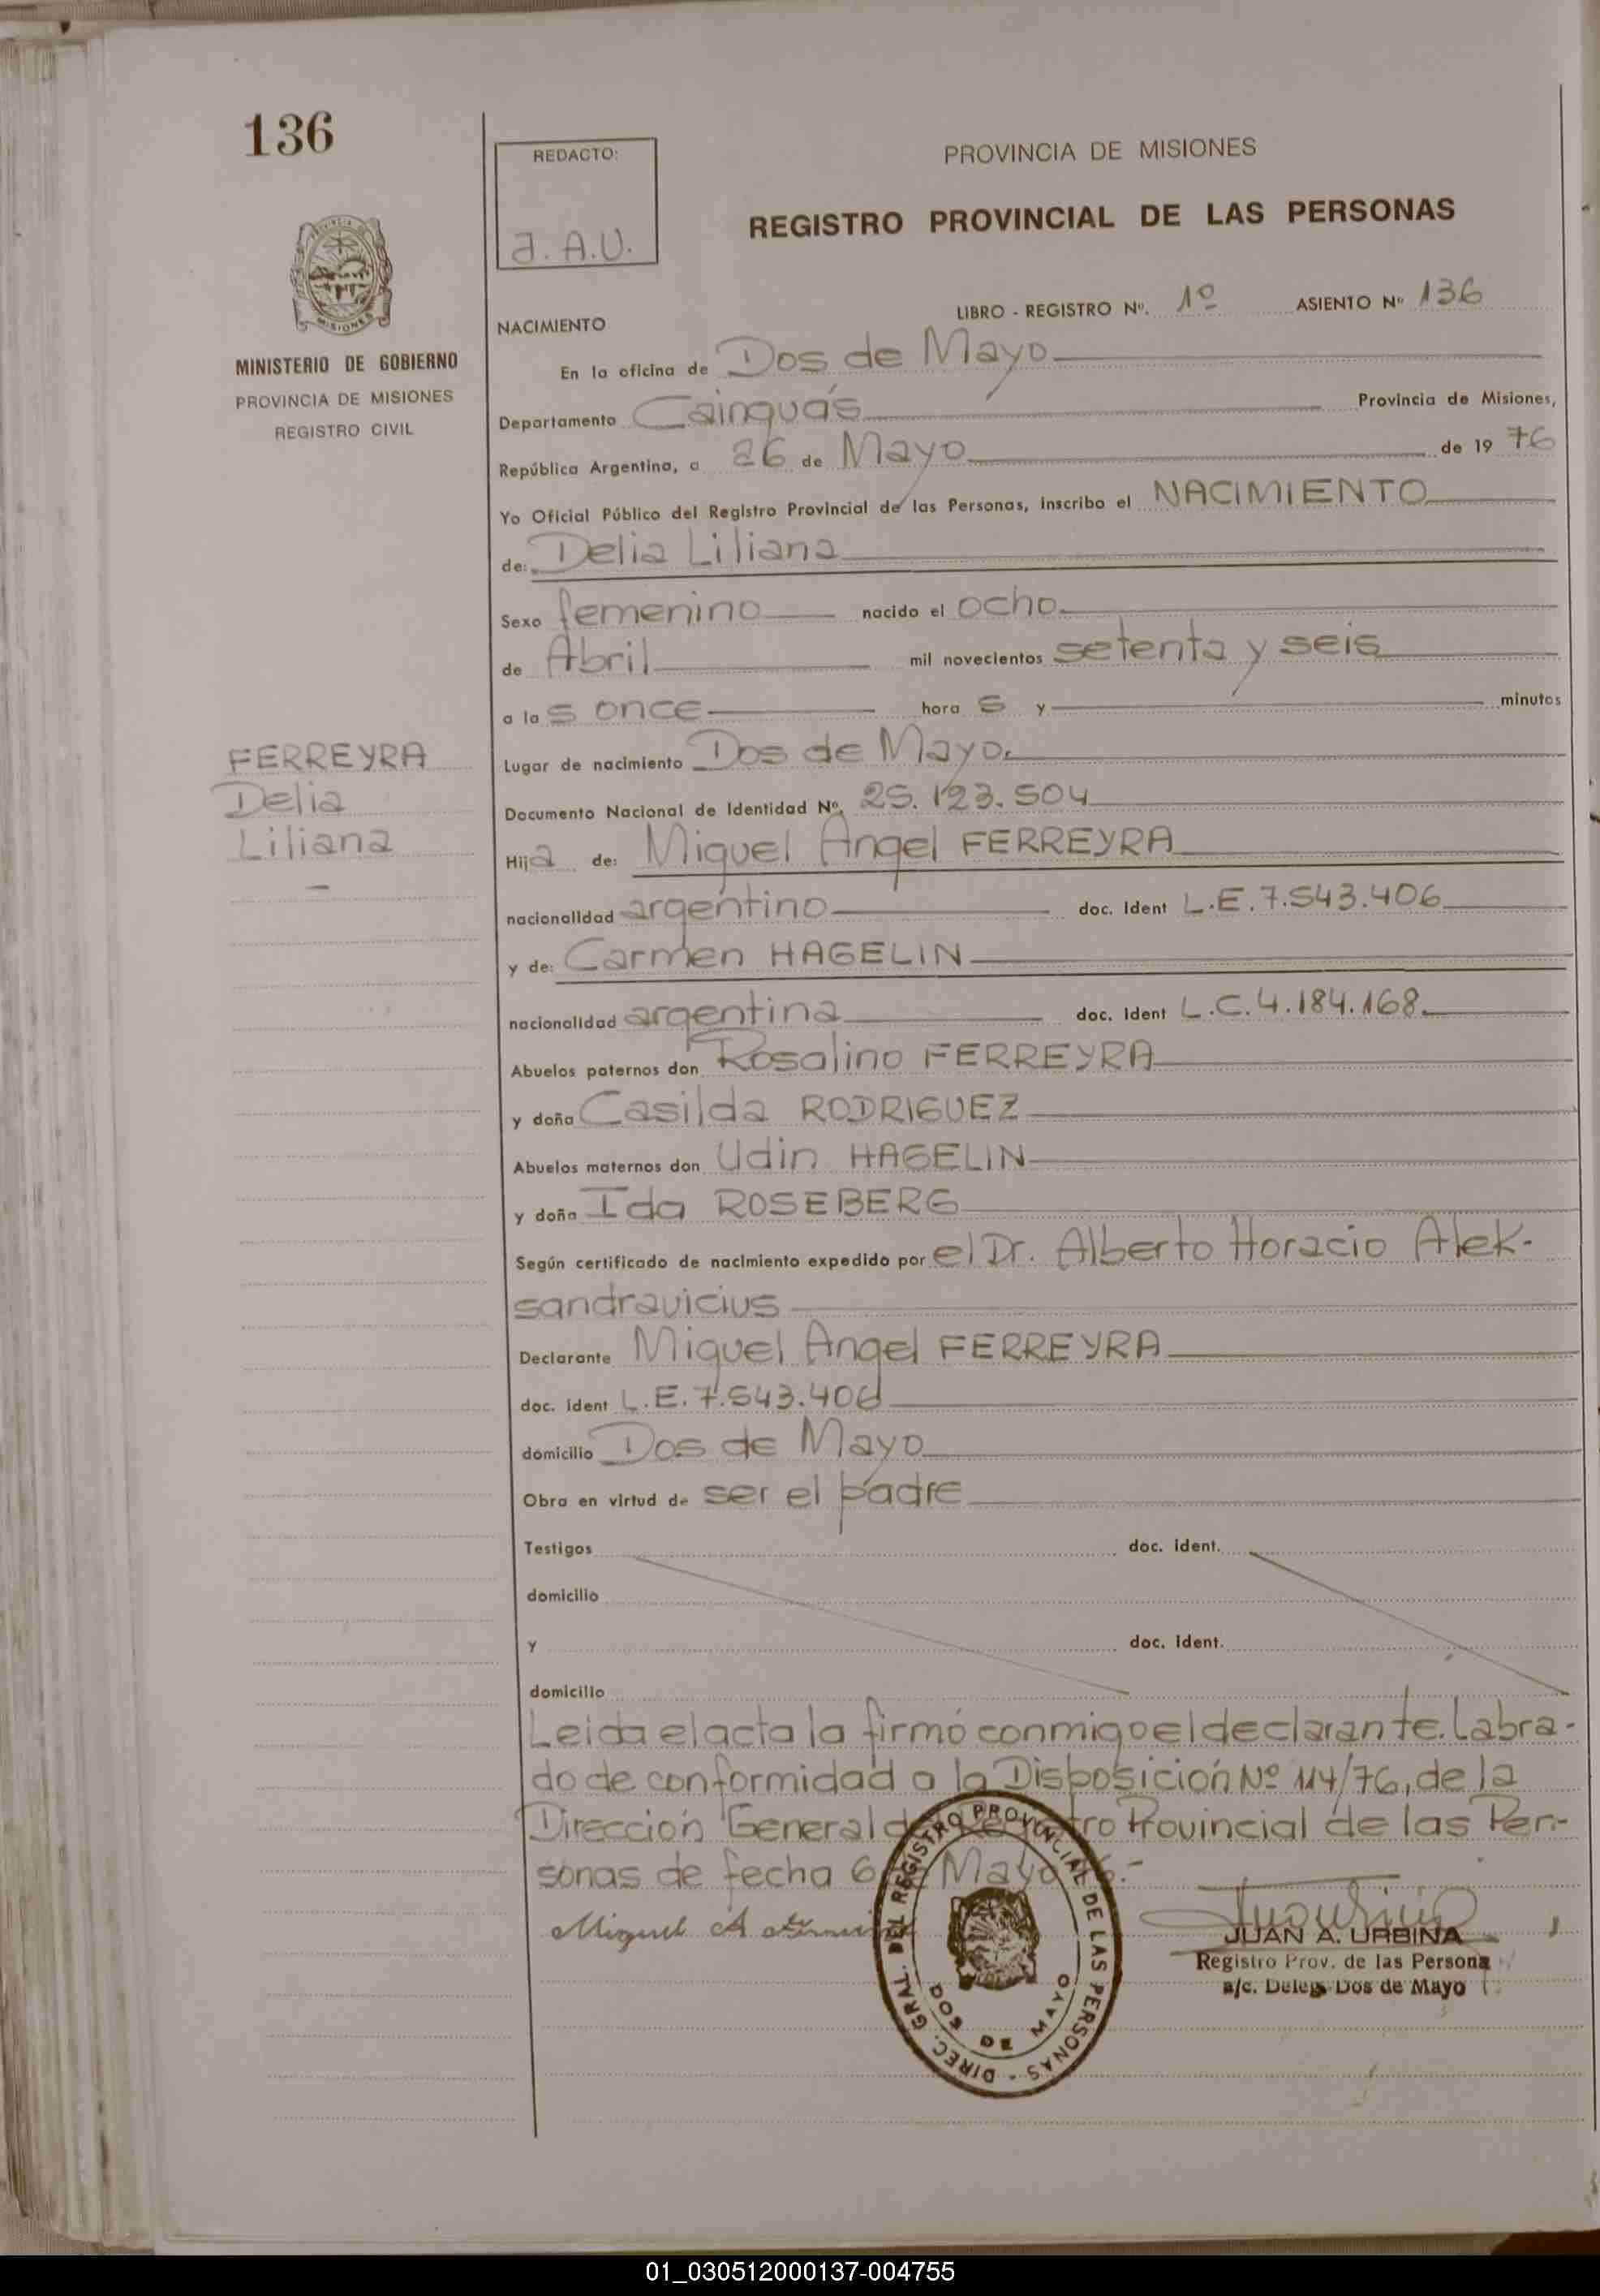 136
PROVINCIA DE MISIONES
REDACTO:
J. A. U.
REGISTRO PROVINCIAL DE LAS PERSONAS
MISIONES
MINISTERIO DE GOBIERNO
PROVINCIA DE MISIONES
REGISTRO CIVIL
LIBRO - REGISTRO Nº. 1º ASIENTO Nº 136
NACIMIENTO
En la oficina de Dos de Mayo
Departamento Cainguás Provincia de Misiones,
República Argentina, a 26 de Mayo de 19 76
Yo Oficial Público del Registro Provincial de las Personas, inscribo el NACIMIENTO
de: Delia Liliana
Sexo femenino nacido el ocho
de Abril mil novecientos setenta y seis
a la s once hora s y minutos
FERREYRA
Delia
Liliana
Lugar de nacimiento Dos de Mayo
Documento Nacional de Identidad Nº. 25.123.504
Hija de: Miguel Angel FERREYRA
nacionalidad argentino doc. Ident L.E.7.543.406
y de: Carmen HAGELIN
nacionalidad argentina doc. Ident L.C.4.184.168
Abuelos paternos don Rosalino FERREYRA
y doña Casilda RODRIGUEZ
Abuelos maternos don Udin HAGELIN
y doña Ida ROSEBERG
Según certificado de nacimiento expedido por el Dr. Alberto Horacio Alek-
sandravicius
Declarante Miguel Angel FERREYRA
doc. ident L.E.7.543.406
domicilio Dos de Mayo
Obra en virtud de ser el padre
Testigos doc. ident.
domicilio
y doc. ident.
domicilio
Leida el acta la firmó conmigo el declarante. Labra-
do de conformidad a la Disposición Nº 114/76, de la
Dirección General de Registro Provincial de las Per-
sonas de fecha 6 de Mayo 76.-
Miguel A
DIREC. GRAL. DEL REGISTRO PROVINCIAL DE LAS PERSONAS -
DOS DE MAYO
JUAN A. URBINA
Registro Prov. de las Persona
a/c. Deleg. Dos de Mayo
01_030512000137-004755